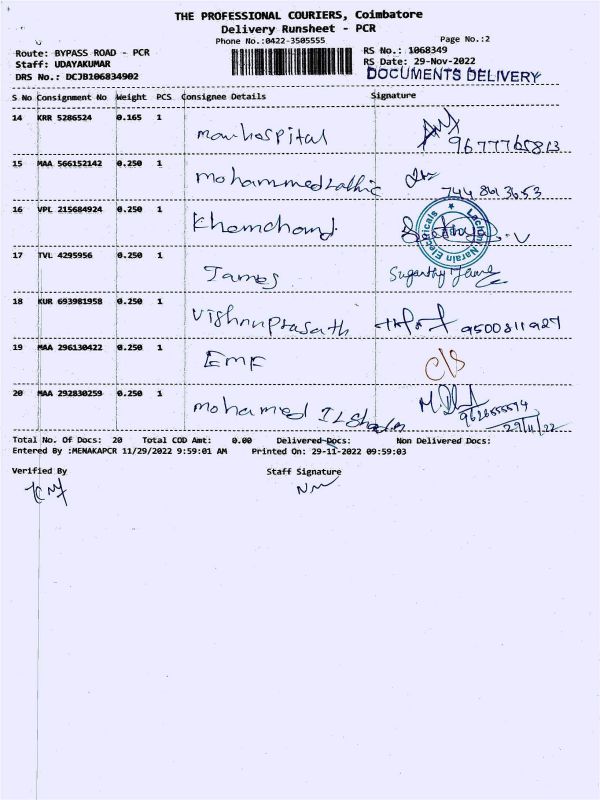 THE PROFESSIONAL COURIERS, Coimbatore
Delivery Runsheet - PCR
Phone No.:0422-3505555 Page No.:2
Route: BYPASS ROAD - PCR RS No.: 1068349
Staff: UDAYAKUMAR RS Date: 29-Nov-2022
DRS No.: DCJB106834902 DOCUMENTS DELIVERY
S No Consignment No Weight PCS Consignee Details Signature
14 KRR 5286524 0.165 1
manhospital
9677765813
15 MAA 566152142 0.250 1
mohammed 744 861 3653
16 VPL 215684924 0.250 1
Khemchand
Lachmi Narain Electricals
17 TVL 4295956 0.250 1
James
18 KUR 693981958 0.250 1
Vishnuprasath 9500811927
19 MAA 296130422 0.250 1
EMF C/S
20 MAA 292830259 0.250 1
mohamed
29/11/22
Total No. Of Docs: 20 Total COD Amt: 0.00 Delivered Docs: Non Delivered Docs:
Entered By :MENAKAPCR 11/29/2022 9:59:01 AM Printed On: 29-11-2022 09:59:03
Verified By Staff Signature